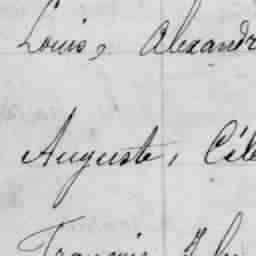 Louis, Alexandr
Auguste, Céle
François